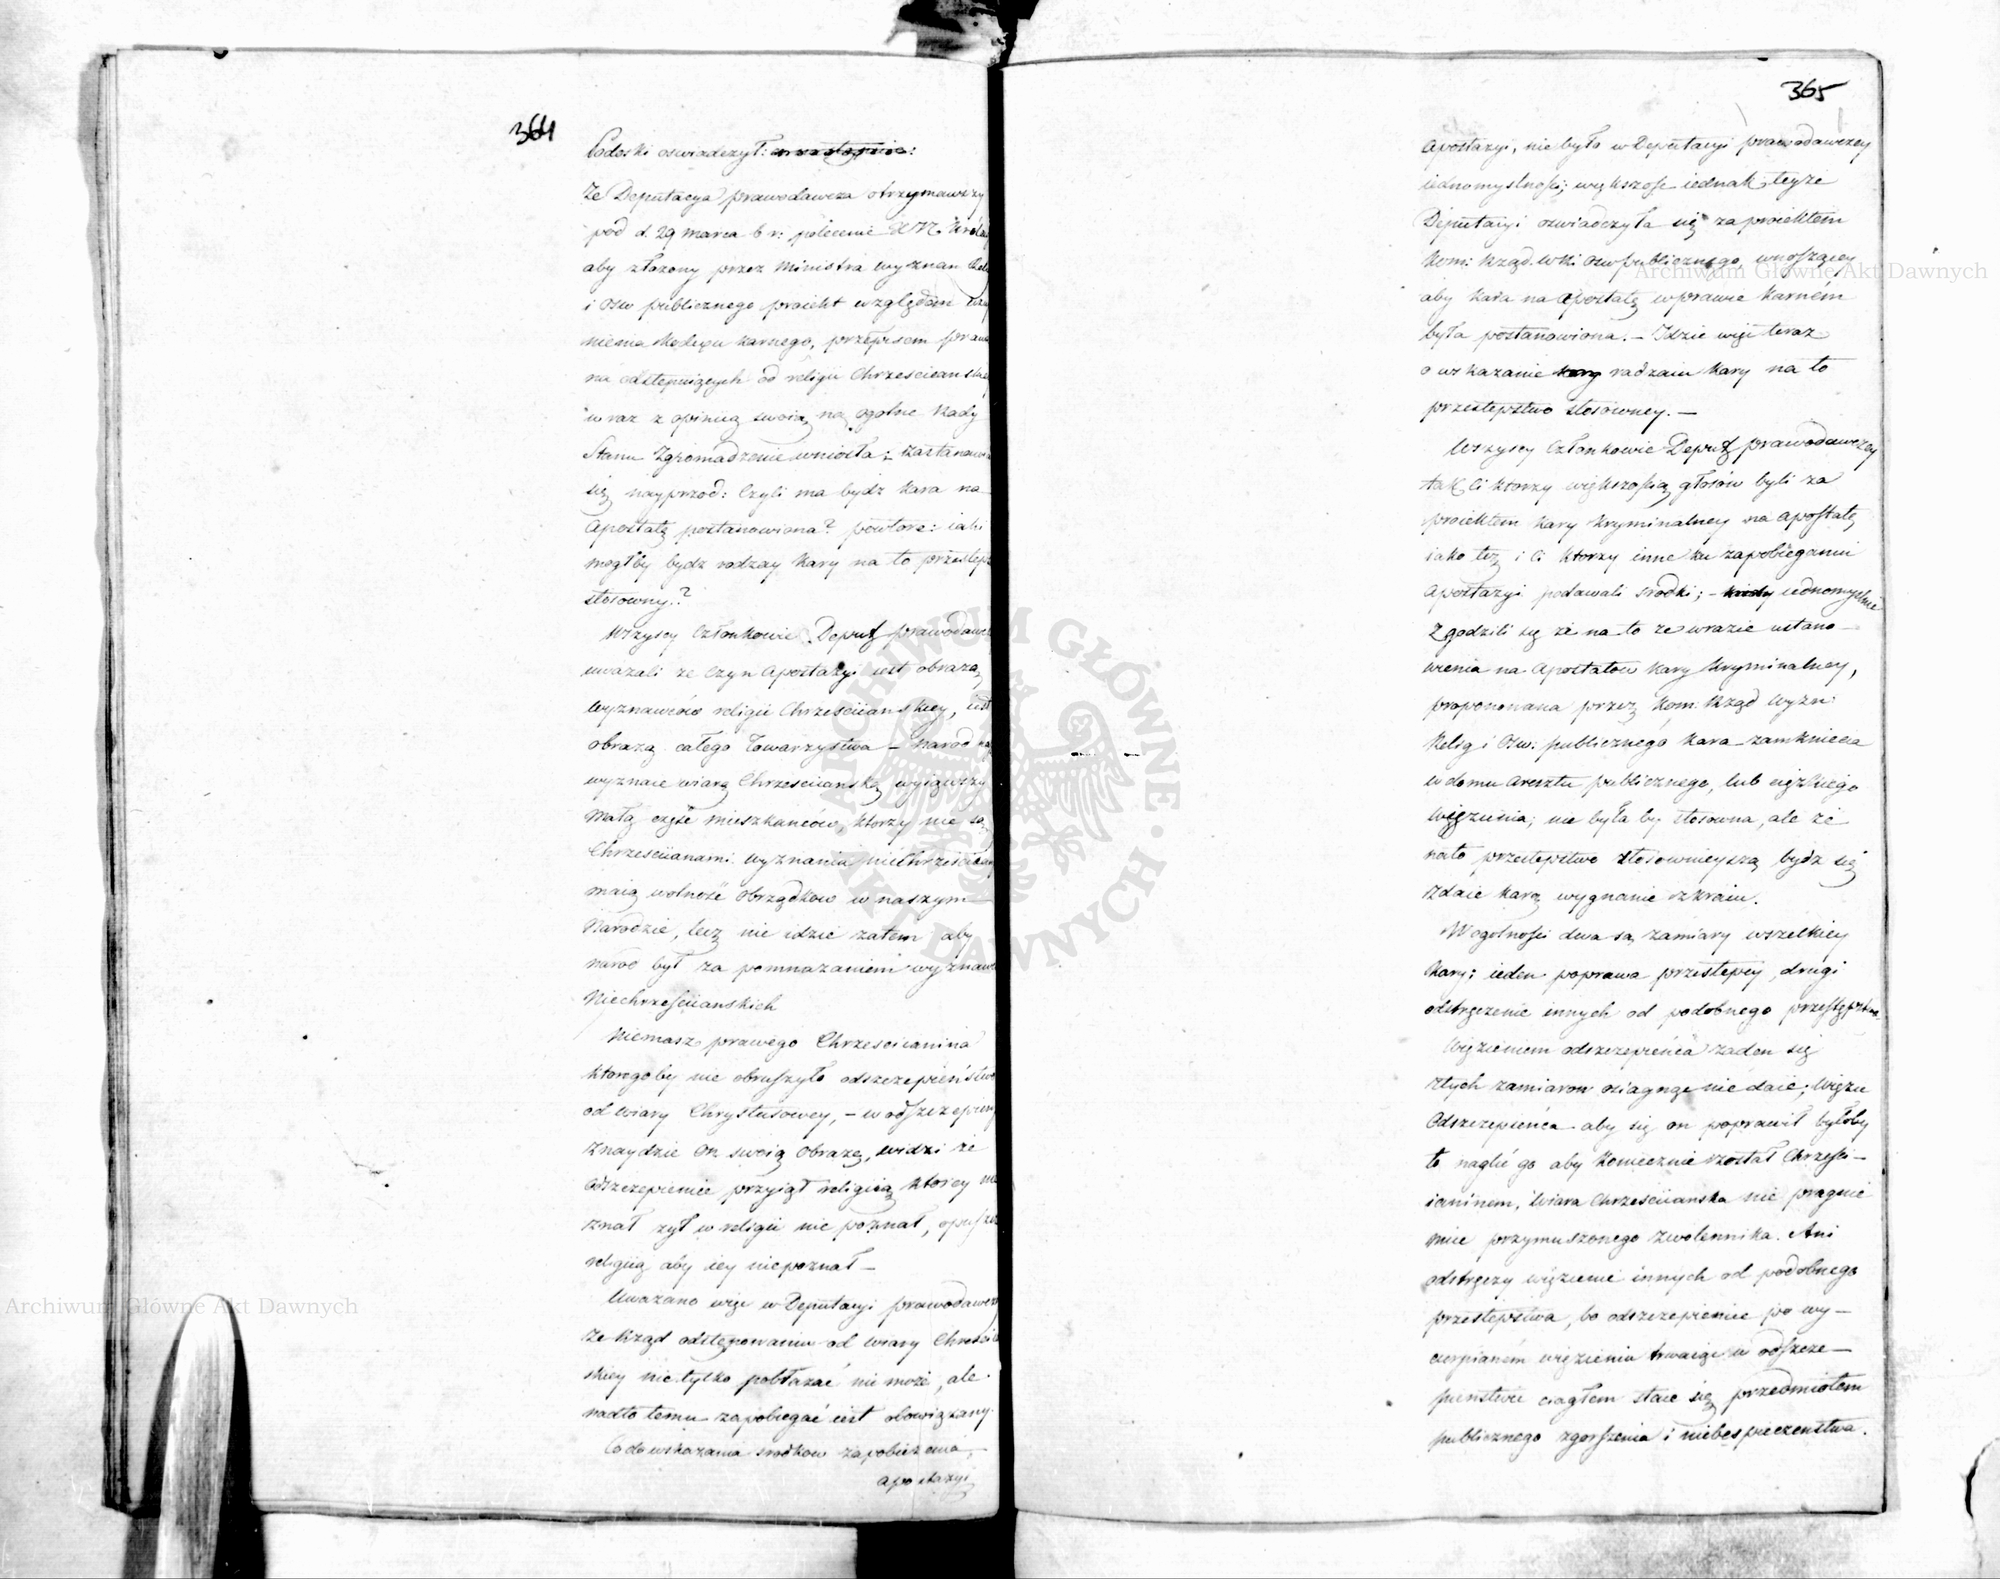 364
Podoski oswiadczył:
Ze Deputacya prawodawcza otrzymawszy
pod d. 29 marca b r: polecenie
aby złożony przez Ministra wyznan
i Osw publicznego proiekt względem
nienia Kodexu karnego, przepisem
na odstępuiących od religii Chrzescians
wraz z opinią swoią na ogolne Rady
Stanu Zgromadzenie wniosła; zastanow
się nayprzod: Czyli ma bydz kara na
Apostatę postanowiona? powtore: iaki
mogłby bydz rodzay kary na to przestęp
stosowny?
Wszyscy Członkowie Deput prawodaw
uwazali ze Czyn Apostazyi iest obrazą
wyznawców religii Chrzesciianskiey, iest
obrazą całego Towarzystwa – narod na
wyznaie wiarę Chrzesciianską wyiąwszy
małą częśc mieszkancow, ktorzy nie są
Chrzesciianami. Wyznania niechrzescian
maią wolność obrządkow w naszym
Narodzie, lecz nie idzie zatem aby
narod był za pomnazaniem wyznaw
Niechrzesciianskich
Niemasz prawego Chrzescianina
ktoregoby nie obruszyło odszczepieństwo
od wiary Chrystusowey, – w odszczepieńc
znaydzie on swoią obrazę, widzi że
odszczepieniec przyiął religią ktorey nie
znał żył w religii nie poznał, opuszcz
religią aby iey niepoznał –
Uwazano więc w Deputacyi prawodawcz
Ze Rząd odstępowaniu od wiary Chrzescia
skiey nie tylko pobłazać nie może, ale
nadto temu zapobiegać iest obowiązany.
Co do wskazania srodkow zapobiezenia
apostazyi
365
Apostazyi, nie było w Deputacyi prawodawczey
iednomyslności; większość iednak teyże
Deputacyi oswiadczyła się za proiektem
Kom: Rząd. W. R. i Osw publicznego, wnoszącey
aby kara na Apostatę w prawie karném
była postanowiona. – Idzie więc teraz
o wskazanie rodzaiu kary na to
przestępstwo stosowney. –
Wszyscy Członkowie Deput prawodawczey
tak Ci ktorzy większością głosów byli za
proiektem kary kryminalney na apostatę
iako tez i Ci ktorzy inne ku zapobieganiu
Apostazyi podawali srodki; – iednomyslnie
zgodzili się na to ze w razie ustano–
wienia na Apostatow kary kryminalney,
proponowana przez Kom: Rząd Wyzn:
Relig i Osw: publicznego kara zamknięcia
w domu Aresztu publicznego, lub ciężkiego
więzienia; nie była by stosowna, ale że
nato przestępstwo stosownieyszą bydz się
zdaie karą wygnanie z kraiu.
W ogolności dwa są zamiary wszelkiey
kary; ieden poprawa przestępcy, drugi
odstręczenie innych od podobnego przestępstwa
Więzieniem odszczepieńca żaden się
z tych zamiarow osiągnąć nie daie; Więzic
Odszczepieńca aby się on poprawił byłoby
to naglić go aby koniecznie został Chrześci–
ianinem, Wiara Chrzesciianska nie pragnie
miec przymuszonego zwolennika. Ani
odstręczy więzienie innych od podobnego
przestępstwa, bo odszczepieniec po wy–
cierpianém więzieniu trwaiąc w odszcze–
pienstwie ciągłem staie się przedmiotem
publicznego zgorszenia i niebespieczenstwa.
Archiwum Główne Akt Dawnych
Archiwum Główne Akt Dawnych
ARCHIWUM GŁÓWNE AKT DAWNYCH